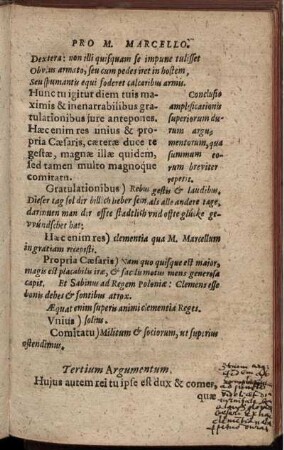 PRO M. MARCELLO.
Dextera: non illi quisquam se impune tulisset
Obvius armato, seu cum pedes iret in hostem,
Seu spumantis equi foderet calcaribus armis.
Hunc tu igitur diem tuis ma-
ximis & inenarrabilibus gra-
tulationibus jure antepones.
Hæc enim res unius & pro-
pria Cæsaris, cæteræ duce te
gestæ, magnæ illæ quidem,
sed tamen multo magnoque
comitatu.
Conclusio
amplificationis
superiorum du-
rum argu-
mentorum, qua
summum to-
rum breviter
repetit.
Gratulationibus) Rebus gestis & laudibus,
Dieser tag sol dir billich heber sein, als alle andere tage,
darinnen man dir offte stadtlich vnd offte glücke ge-
vvündschet hat;
Hæc enim res) clementia qua M. Marcellum
in gratiam recepisti.
Propria Cæsaris) Nam quo quisque est maior,
magis est placabilis iræ, & faciles motus mens generosa
capit. Et Sabinus ad Regem Poloniæ: Clemens esse
bonis debet & sontibus atrox.
Æquat enim superis animi clementia Reges.
Unius) solius.
Comitatu) Militum & sociorum, ut supriùs
ostendimus.
Tertium Argumentum.
Hujus autem rei tu ipse es & dux & comes,
quæ